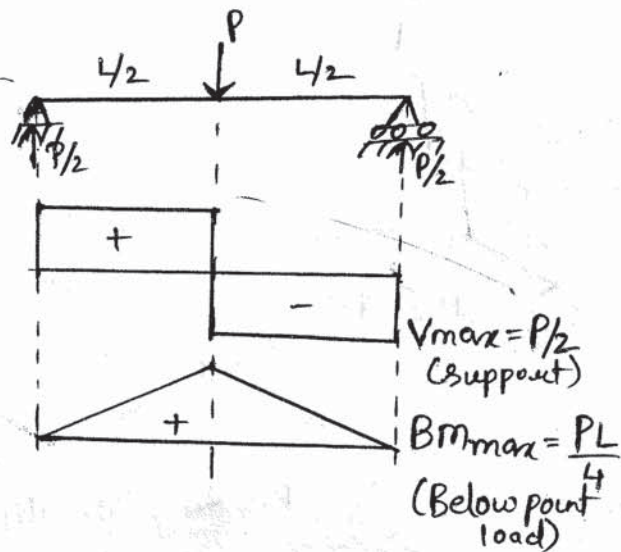 P
L/2 L/2
P/2 P/2
+
-
Vmax = P/2
(support)
+
BMmax = PL/4
(Below point
load)